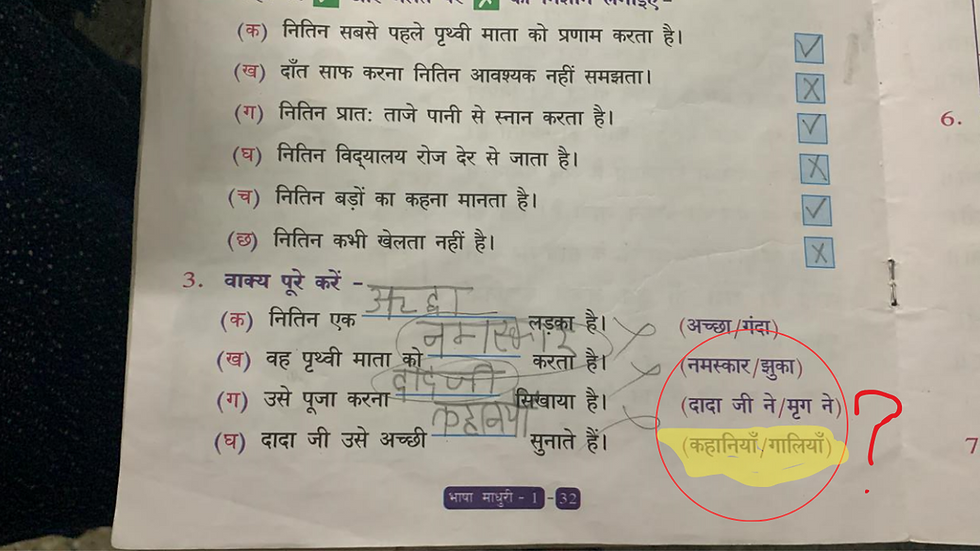 (क) नितिन सबसे पहले पृथ्वी माता को प्रणाम करता है। ✓
(ख) दाँत साफ करना नितिन आवश्यक नहीं समझता। X
(ग) नितिन प्रातः ताजे पानी से स्नान करता है। ✓
(घ) नितिन विद्यालय रोज देर से जाता है। X
(च) नितिन बड़ों का कहना मानता है। ✓
(छ) नितिन कभी खेलता नहीं है। X
6.
3. वाक्य पूरे करें -
(क) नितिन एक अच्छा लड़का है। (अच्छा/गंदा)
(ख) वह पृथ्वी माता को नमस्कार करता है। (नमस्कार/झुका)
(ग) उसे पूजा करना दादजी सिखाया है। (दादा जी ने/मृग ने) ?
(घ) दादा जी उसे अच्छी कहानिया सुनाते हैं। (कहानियाँ/गालियाँ)
7
भाषा माधुरी - 1 - 32